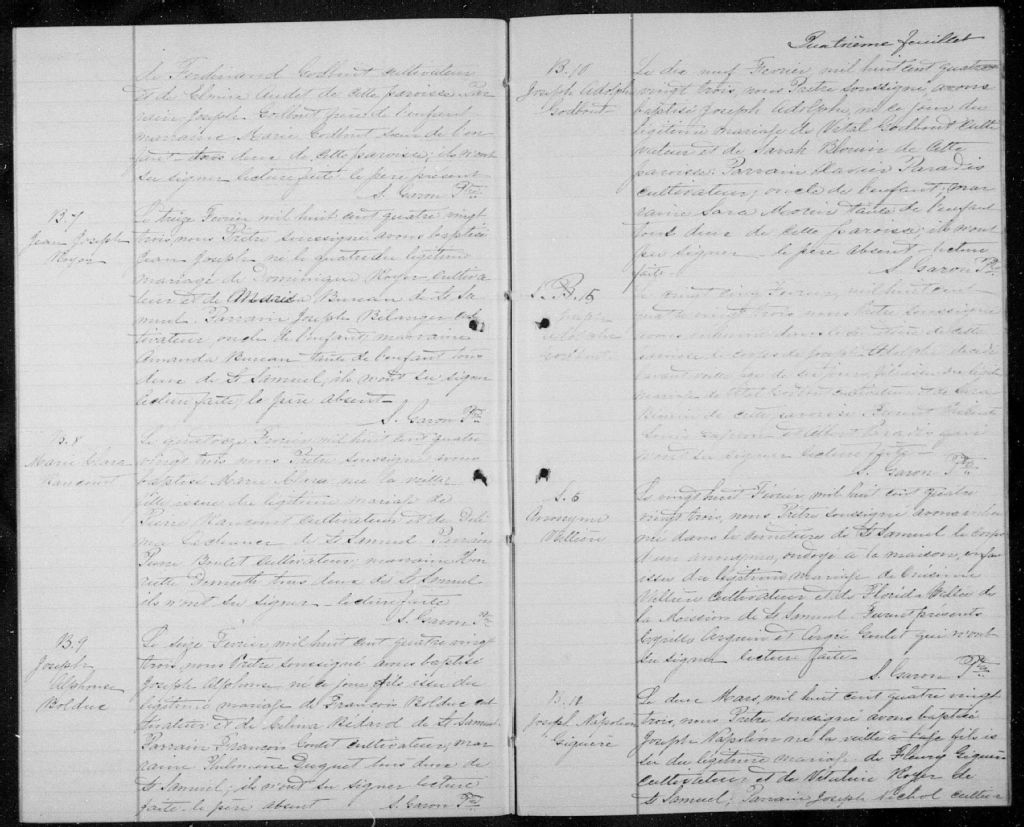 de Ferdinand Godbout cultivateur
et de Elmire Audet de cette paroisse. Par
rain Joseph Godbout frère de l'enfant
marraine Marie Godbout sœur de l'en
fant tous deux de cette paroisse; ils n'ont
su signer lecture faite le père présent
S. Garon Ptre
B. 7
Jean Joseph
Royer
Le treize Fevrier mil huit cent quatre vingt
trois, nous Prêtre soussigné avons baptisé
Jean Joseph né le quatre du légitime
mariage de Dominique Royer Cultiva
teur et de Bureau de St Sa
muel. Parrain Joseph Bélanger cul
tivateur oncle de l'enfant, marraine
Amanda Bureau tante de l'enfant tous
deux de St Samuel, ils n'ont su signer
lecture faite, le père absent
S. Garon Ptre
B. 8
Marie Clara
Rancourt
Le quatorze Fevrier mil huit cent quatre
vingt trois nous Prêtre soussigné avons
baptisé Marie Clara née la veille
fille issue du légitime mariage de
Pierre Rancourt Cultivateur et de Deli
ma de St Samuel Parrain
Pierre Boulet Cultivateur; marraine Hen
riette tous deux de St Samuel
ils n'ont su signer lecture faite
S. Garon Ptre
B. 9
Joseph
Alphonse
Bolduc
Le seize Fevrier mil huit cent quatre vingt
trois nous Prêtre soussigné avons baptisé
Joseph Alphonse né ce jour fils issu du
légitime mariage de François Bolduc cul
tivateur et de Celina Bédard de St Samuel
Parrain François cultivateur, mar
raine Philomène Duquet tous deux de
St Samuel; ils n'ont su signer lecture
faite le père absent S. Garon Ptre
Quatrième feuillet
B. 10
Joseph Adolphe
Godbout
Le dix neuf Fevrier mil huit cent quatre
vingt trois, nous Prêtre soussigné avons
baptisé Joseph Adolphe, né ce jour du
légitime mariage de Vital Godbout Culti
vateur et de Sarah Blouin de cette
paroisse. Parrain Xavier Paradis
cultivateur, oncle de l'enfant, mar
raine Sara Morin tante de l'enfant
tous deux de cette paroisse; ils n'ont
pu signer le père absent lecture
faite S. Garon Ptre
Joseph
Adolphe
Godbout
Le vingt cinq Fevrier, mil huit cent
quatre vingt trois nous Prêtre soussigné
avons inhumé dans le cimetière de cette
paroisse le corps de Joseph Adolphe décédé
avant veille agé de six jours, fils issu du légitime
mariage de Vital Godbout cultivateur et de Sara
Blouin de cette paroisse Furent Présents
Louis et Albert Paradis qui
n'ont su signer lecture faite
S. Garon Ptre
S. 6
Anonyme
Le vingt huit Fevrier, mil huit cent quatre
vingt trois, nous Prêtre soussigné avons inhu
mé dans le cimetière de St Samuel le corps
d'un anonyme, ondoyé à la maison, enfant
issu du légitime mariage de Onésime
cultivateur et de Florida de
la Mission de St Samuel. Furent présents
Arguin et Goulet qui n'ont
su signer lecture faite
S. Garon Ptre
Joseph Napoléon
Giguère
Le deux Mars, mil huit cent quatre vingt
trois, nous Prêtre soussigné avons baptisé
Joseph Napoléon né la veille fils is
su du légitime mariage de Fleury Giguère
cultivateur et de Royer de
St Samuel; Parrain Joseph Nichol cultiva